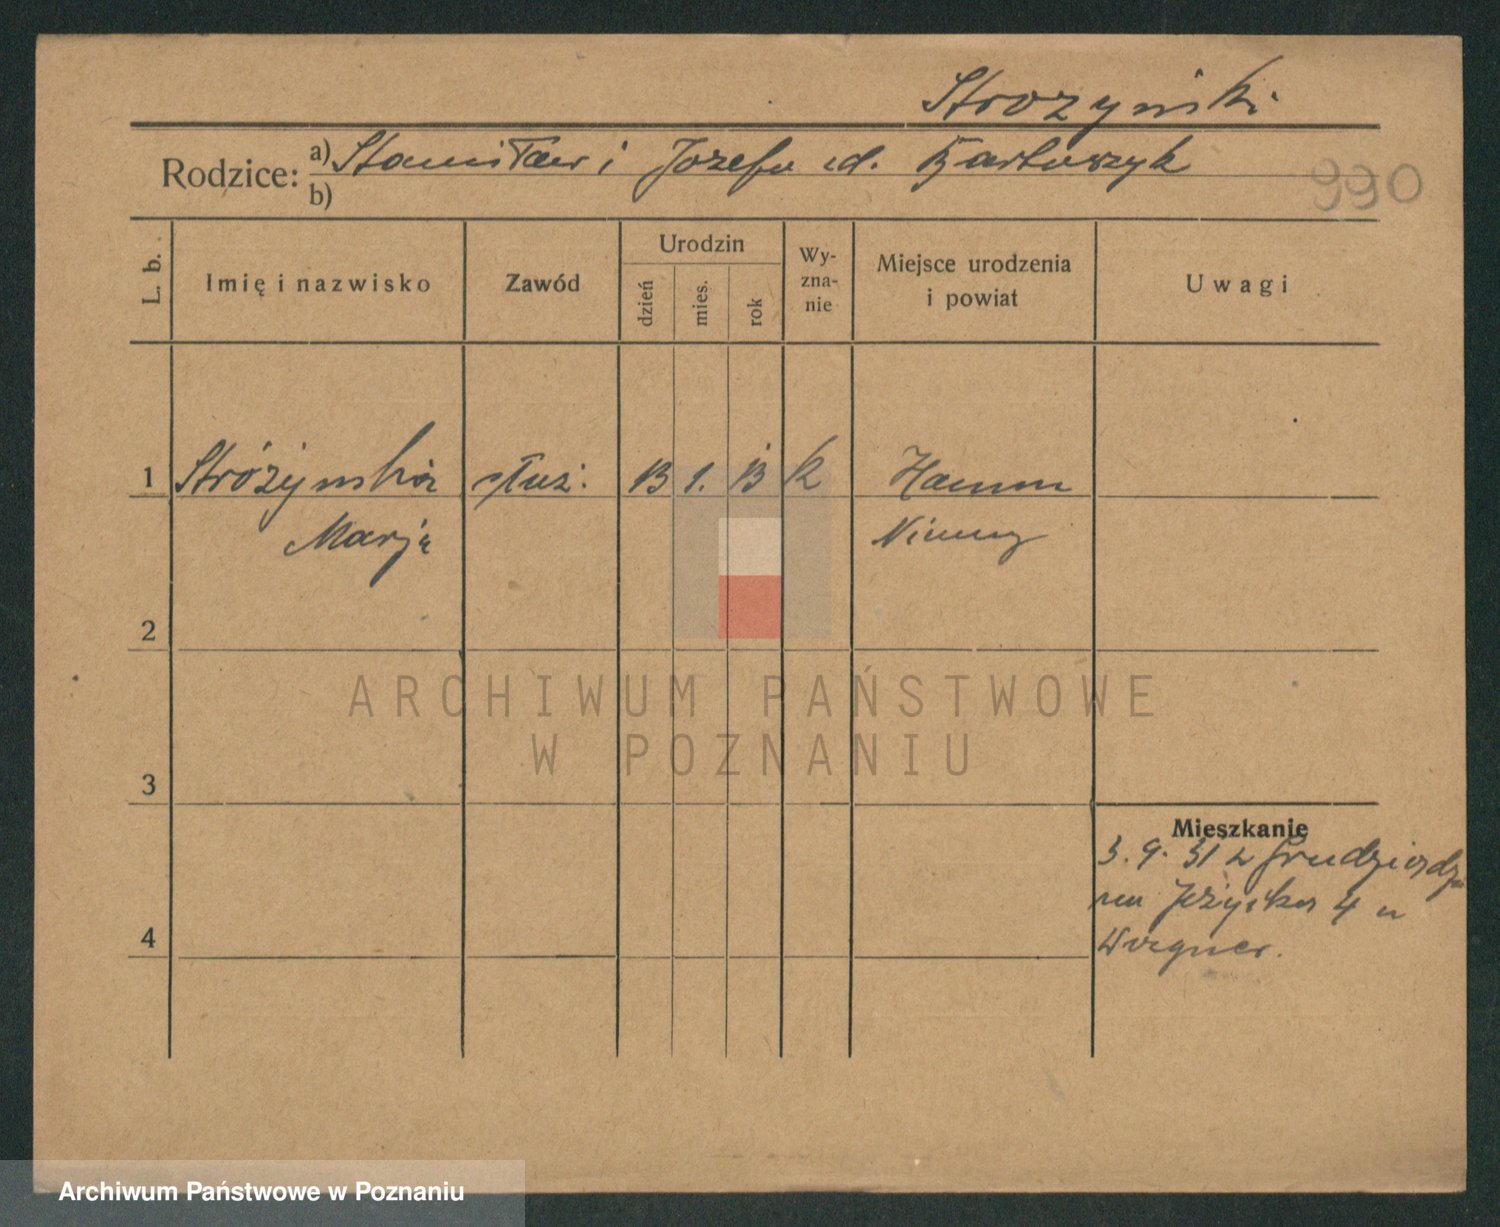 Strożyński
Rodzice: a) Stanisław i Józefa zd. Bartoszyk
b)
990
L. b. Imię i nazwisko Zawód Urodzin dzień mies. rok Wy-zna-nie Miejsce urodzenia i powiat Uwagi
1 Stróżyńska służ. 13 1. 13 k Hamm
Marja Niemcy
2
ARCHIWUM PAŃSTWOWE
W POZNANIU
3
Mieszkanie
3. 9. 31 z Grudziądza
na Jeżycka 4 u
Wegner.
4
Archiwum Państwowe w Poznaniu